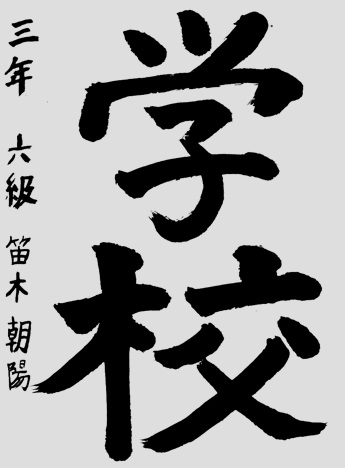 学校
三年 六級 笛木 朝陽